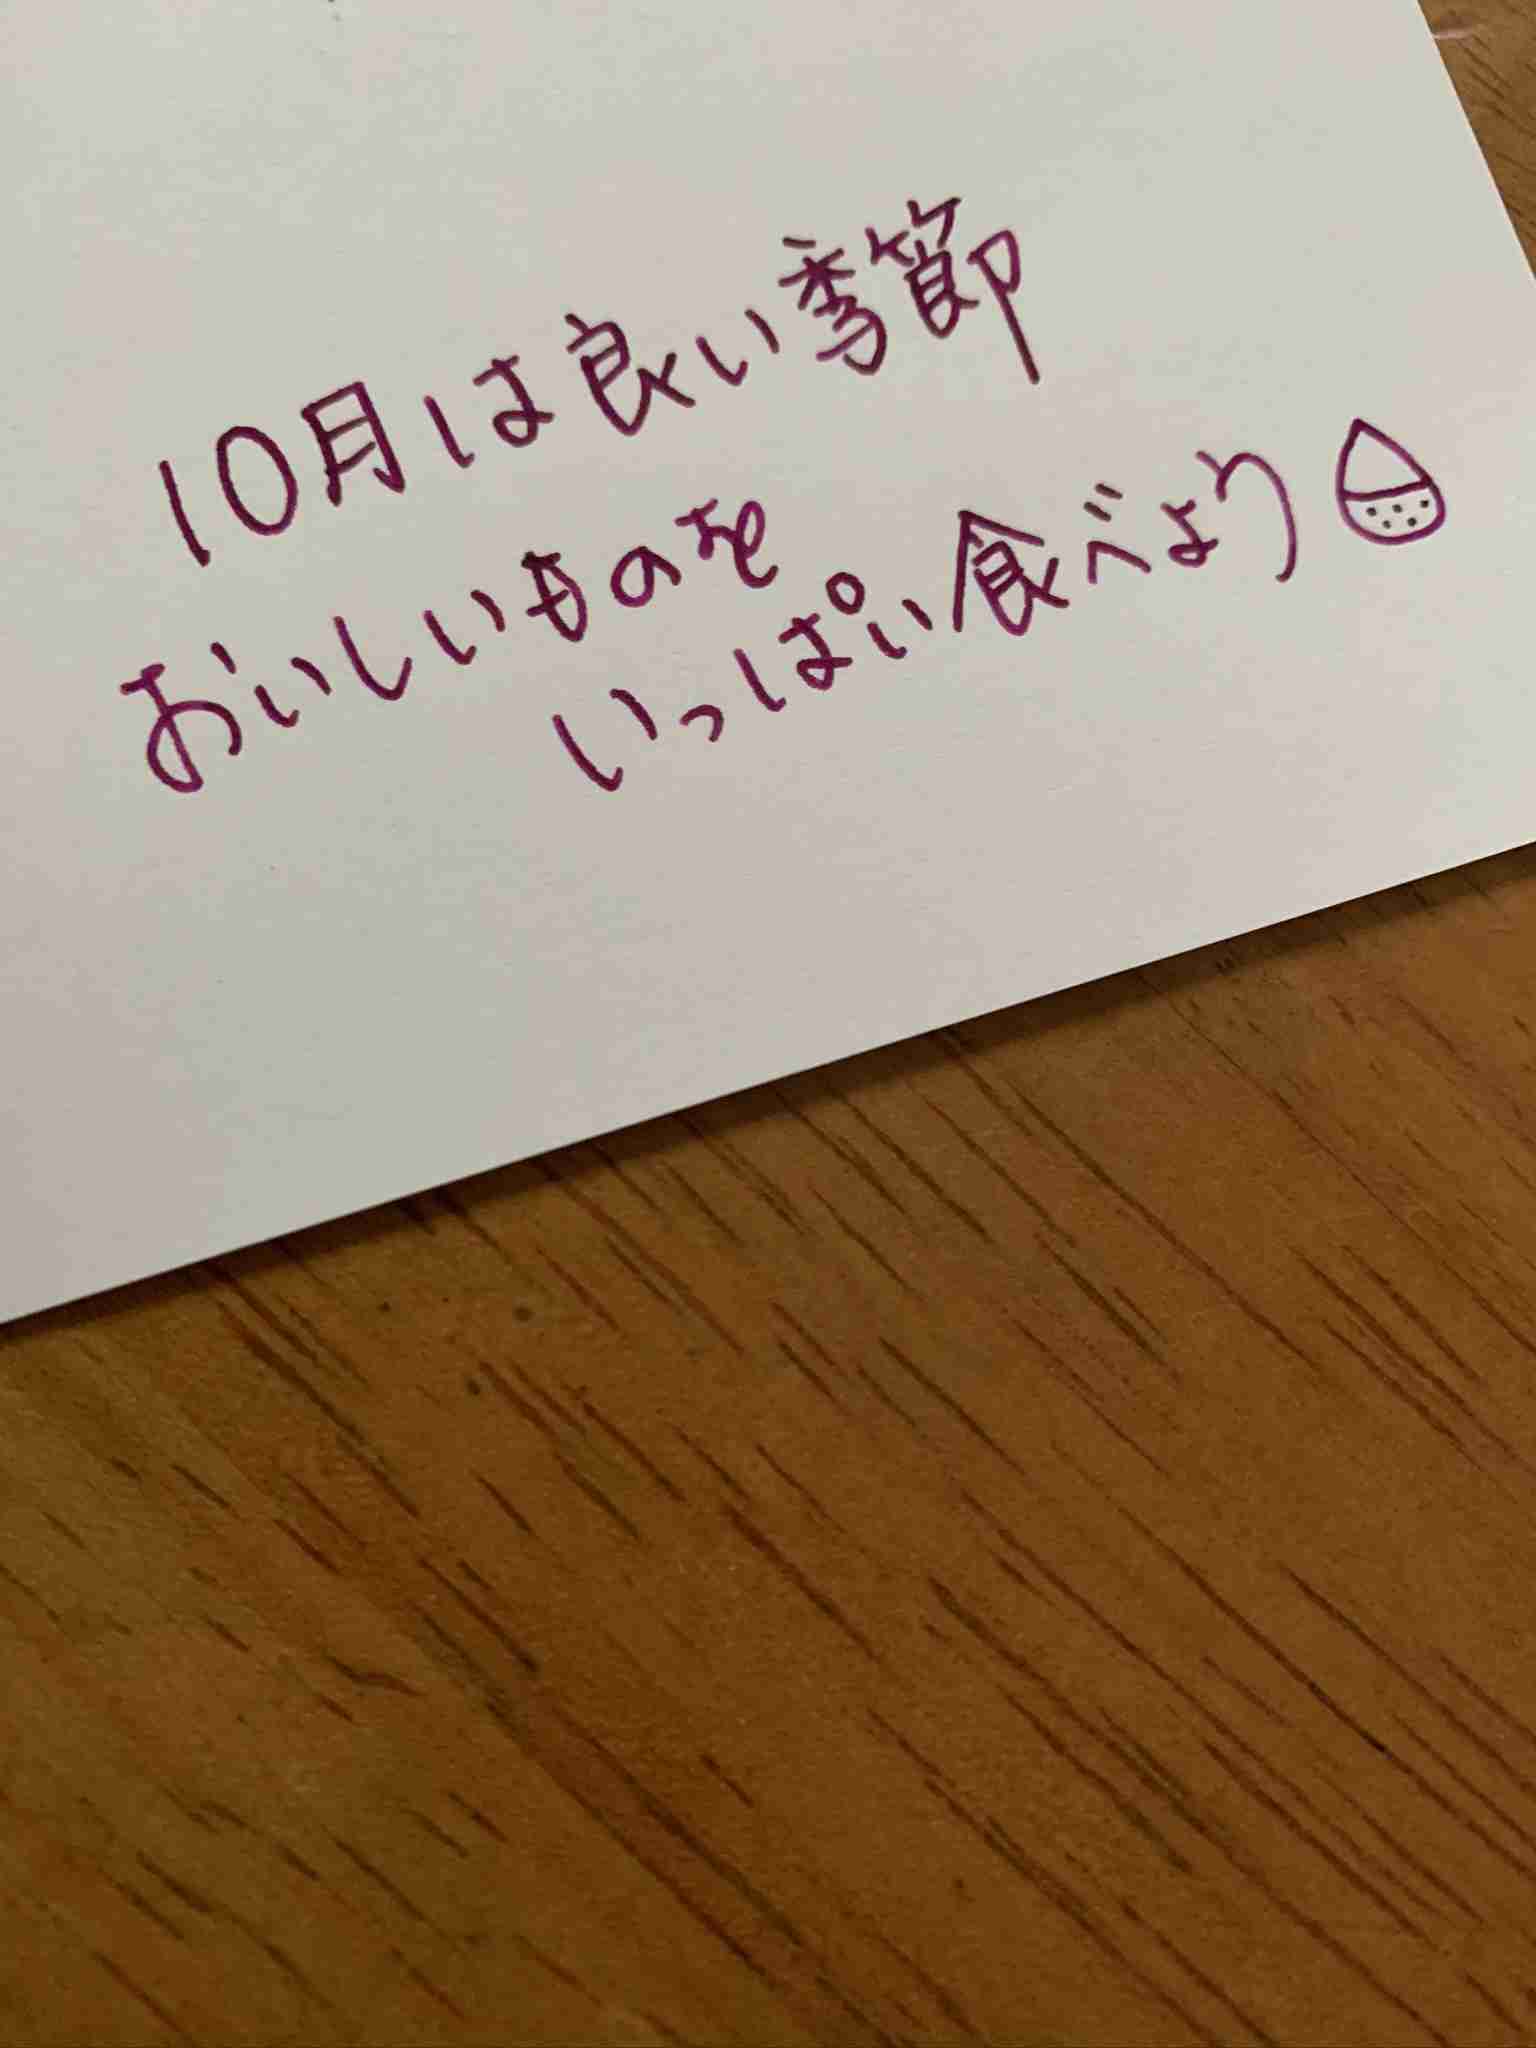 10月は良い季節
おいしいものを
いっぱい食べよう